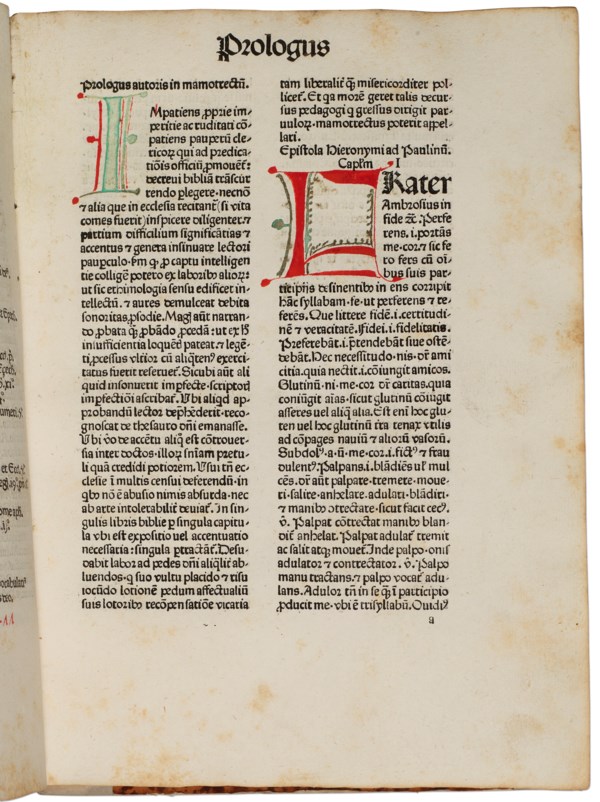 Prologus
Prologus autoris in mamotrectū.
IMpatiens ꝓprie im-
peritie ac ruditati cō-
patiens pauperū cle-
ricoꝝ qui ad predica-
tiōis officiū ꝓmouēt᷑:
decreui bibliā trāscur
rendo ꝑlegere.necnō
⁊ alia que in ecclesia recitant᷑ (si vita
comes fuerit) inspicere diligenter.⁊
partium difficilium significātias ⁊
accentus ⁊ genera insinuare lectori
paupculo.ẜm ꝙ ꝓ captu intelligen
tie colligē potero ex laboribꝰ alioꝝ:
ut sic ethimologia sensu edificet in-
tellectū.⁊ aures demulceat debita
sonoritas.ꝓsodie. Magꝭ aūt narran-
do ꝓbata ꝙ̄ ꝓbādo ꝓcedā:ut ex hꝰ
insufficientia loquēdi pateat.⁊ legē-
ti ꝓcessus vltiorꝭ cū aliqñtēꝰ exerci-
tatus fuerit reseruet᷑. Sicubi aūt ali
quid insonuerit imꝑfecte.scriptorꝭ
imꝑfectiōi ascribat᷑. Ubi aliqd ap-
probandū lector dep̄hēderit.recog-
noscat de thesauro dn̄i emanasse.
Ubi ꝟo de accētu aliq̄ est cōtrouer-
sia inter doctos.illoꝝ sn̄iam p̄tu-
li quā credidi potiorem. Usui tn̄ ec-
clesie ī multis censui deferendū.in
qbꝰ nō ē abusio nimis absurda.nec
ab arte intolerabilit᷑ deuiat᷑. In sin-
gulis libris biblie ꝑ singula capitu-
la vbi est expositio vel accentuatio
necessaria:singula ꝑtractāt᷑. Desu-
dabit labor ad pedes dn̄i aliqliter ab-
luendos.q̇ suo vultu placido ⁊ risu
iocūdo lotionē pedum affectualiū
suis lotoribꝰ recōpensatiōe vicaria
tam liberalit᷑ ꝙ̄ misericorditer pol-
licet᷑. Et qa morē geret talis decur-
sus pedagogi q̇ gressus dirigit par-
uuloꝝ.mamotrectus poterit appel-
lari.
Epistola Hieronymi ad Paulinū.
Caplm̄ I
FRater
Ambrosius in
fide ⁊c̄. Perfe
rens.i.portās
me.cor.⁊ sic fe
ro fers cū oī-
bus suis par-
ticipijs desinentibꝰ in ens corripit
hāc syllabam.fe.ut perferens ⁊ re-
ferēs. Que littere fidē.i.certitudi-
nē ⁊ veracitatē. Fidei.i.fidelitatis.
Preferebāt.i.p̄tendebāt siue ostē-
debāt. Hec necessitudo.nis.dr̄ ami
citia.quia nectit.i.cōiungit amicos.
Glutinū.ni.me.cor dr̄ caritas.quia
coniūgit aīas.sicut glutinū cōiugit
asseres uel aliq̄ alia. Est em̄ hoc glu-
ten uel hoc glutinū ita tenax vtilis
ad cōpages nauiū ⁊ alioꝝ vasorū.
Subdolꝰ.a.ū.me.cor.i.fictꝰ ⁊ frau
dulentꝰ. Palpans.i.blādiēs uꝉ mul
cēs.dr̄ aūt palpare.tremere.moue-
ri.salire.anhelare.adulari.blādiri.
⁊ manibꝰ ↄtrectare.sicut facit cecꝰ.
ꝟ. Palpat cōtrectat manibꝰ blan-
dit᷑ anhelat. Palpat adulat᷑ tremit
ac salit atqꝫ mouet᷑. Inde palpo.onis
adulator ⁊ contrectator. ꝟ. Palpo
manu tractans.⁊ palpo vocat᷑ adu-
lans. Adulor tn̄ in se q̄ ī participio
ꝓducit me.vbi ē trisyllabū. Ouidiꝰ
a